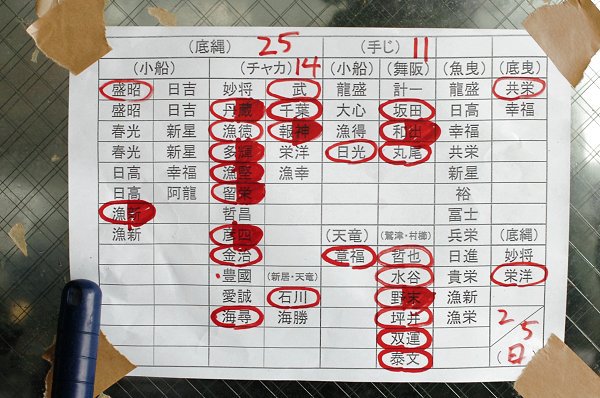 (底縄) 25 (手じ) 11
(小船) (チャカ) 14 (小船) (舞阪) (魚曳) (底曳)
盛昭 日吉 妙将 武 龍盛 計一 龍盛 共栄
盛昭 日吉 丹蔵 千葉 大心 坂田 日高 幸福
春光 新星 漁徳 報神 漁得 和出 幸福
春光 新星 多輝 栄洋 日光 丸尾 共栄
日高 幸福 漁堅 漁幸 新星
日高 阿龍 留栄 裕
漁新 哲昌 冨士
漁新 彦四 (天竜) (鷲津・村櫛) 兵栄 (底縄)
金治 章福 哲也 日進 妙将
豊國 (新居・天竜) 水谷 貴栄 栄洋
愛誠 石川 野末 漁新
海尋 海勝 坪井 漁栄 2/5
双運 (日)
泰文